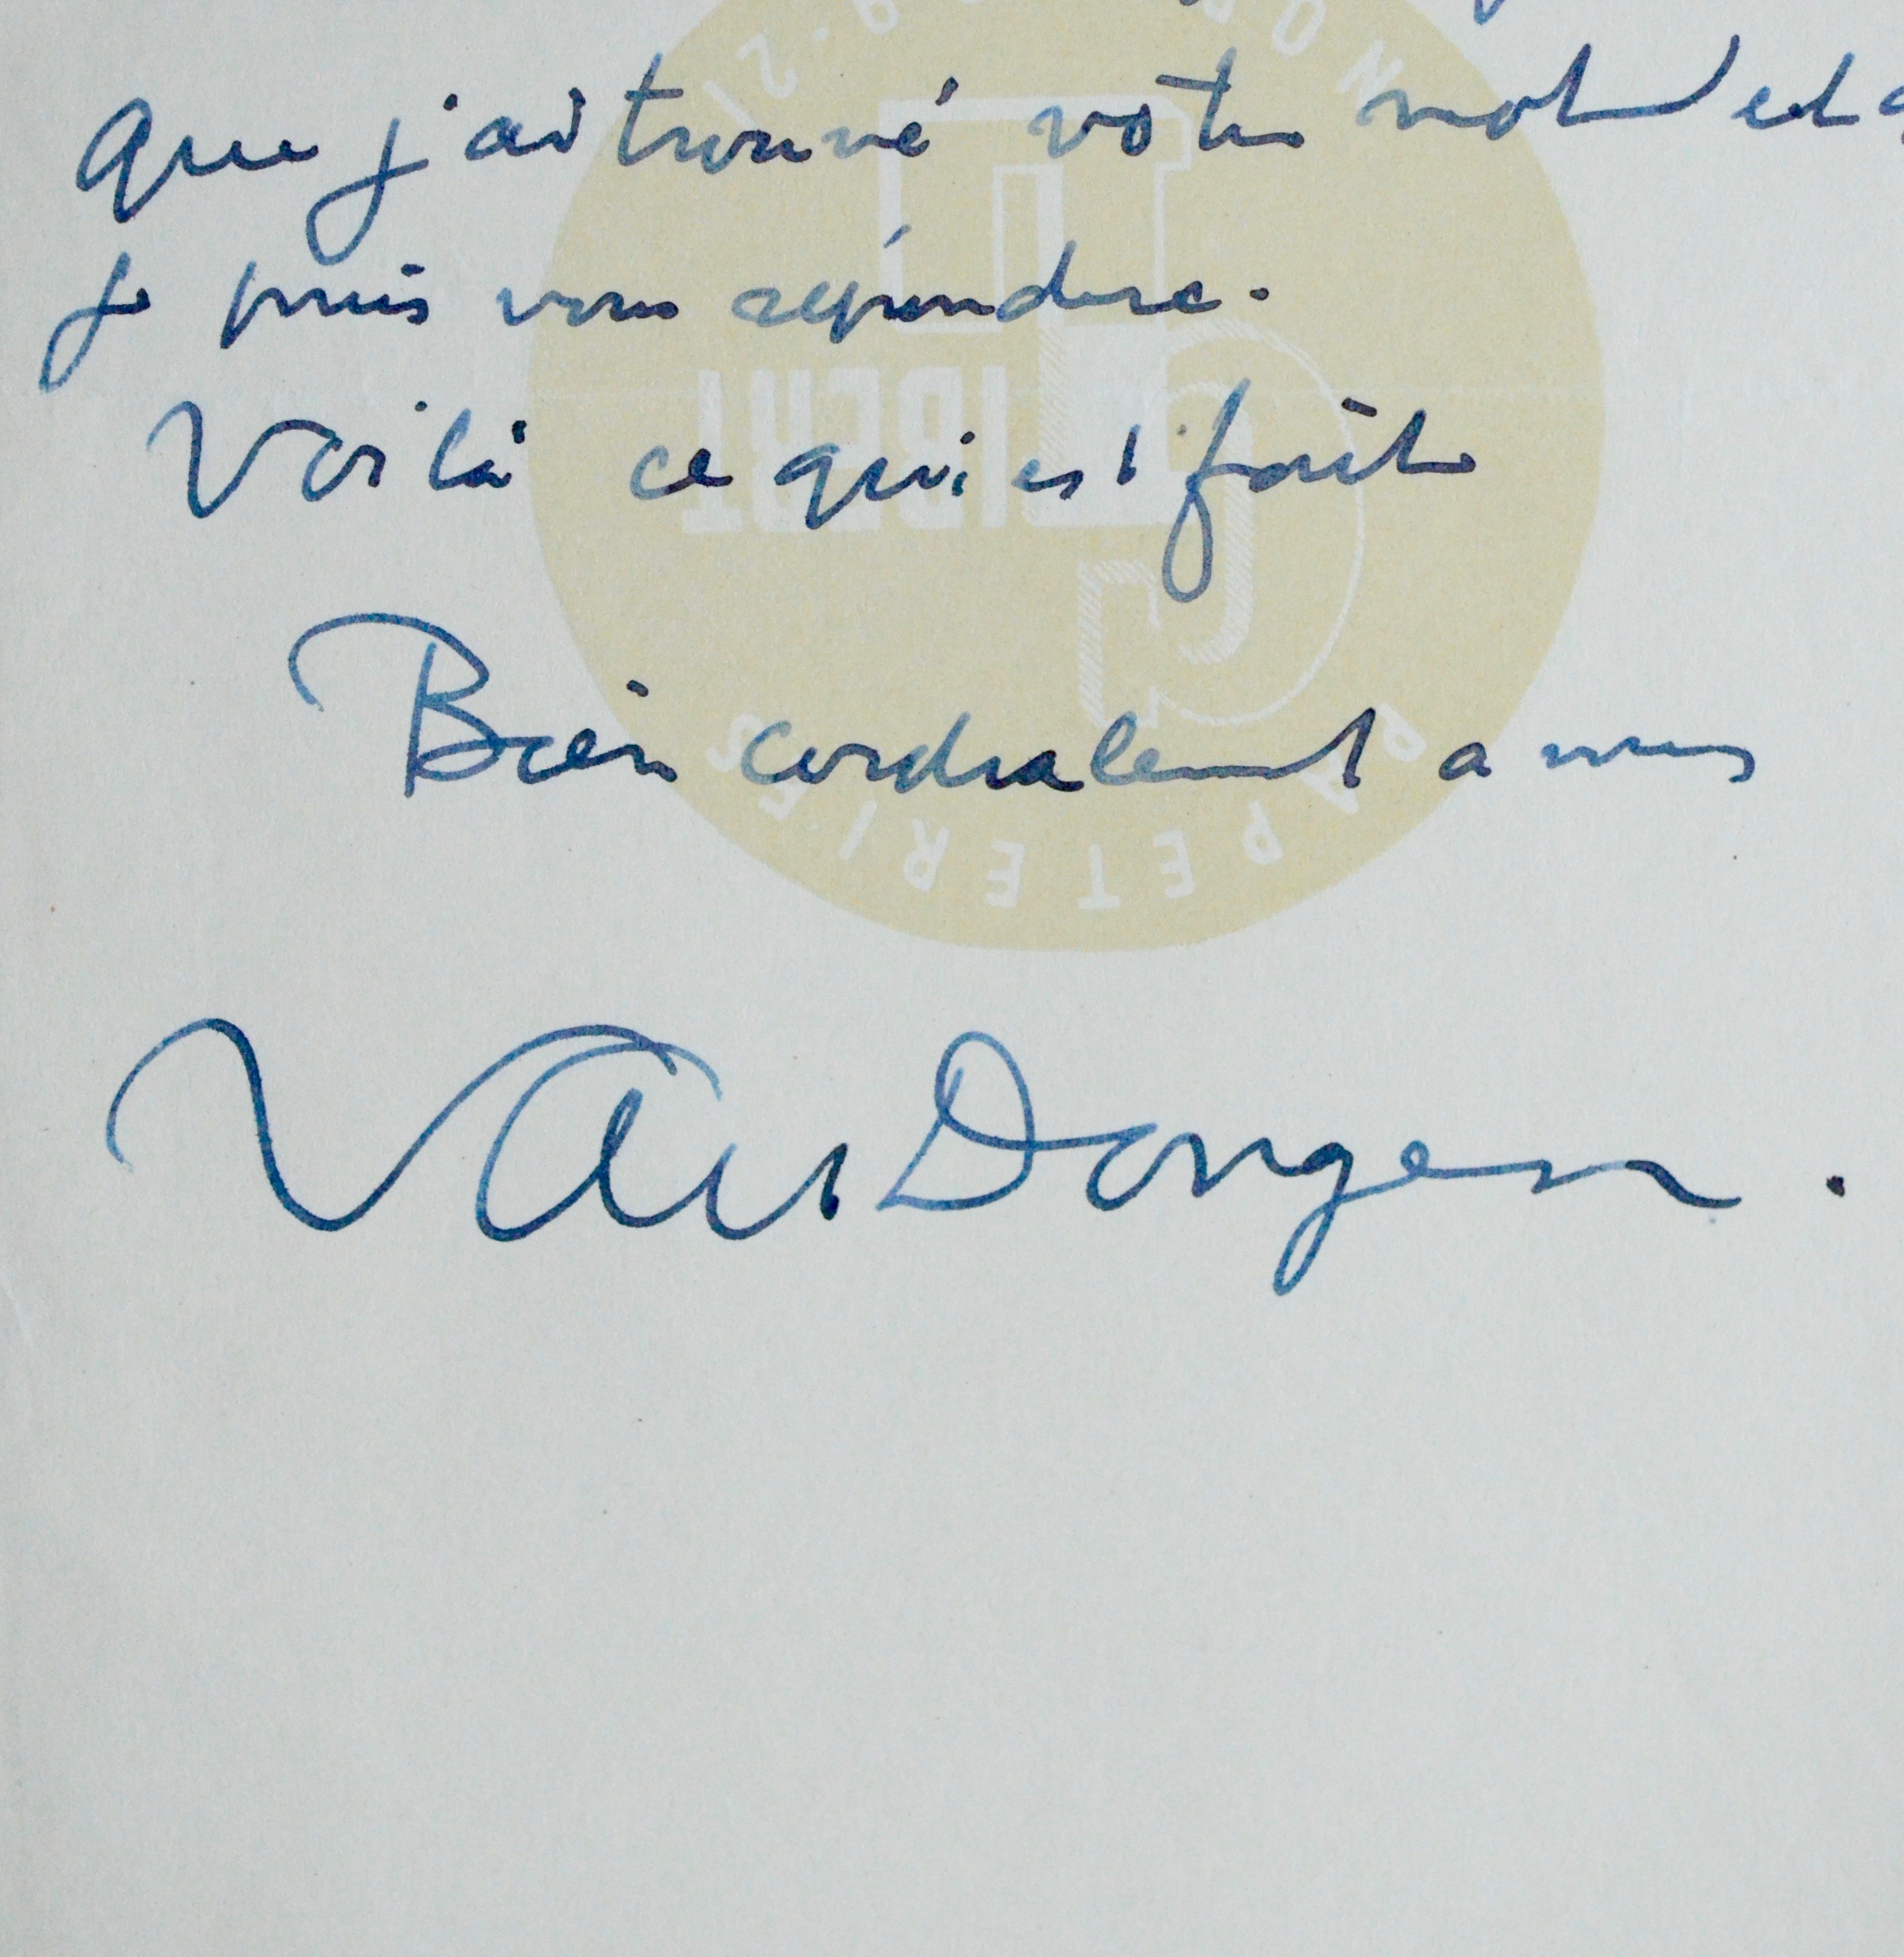 que j'ai trouvé votre mot et
je puis vous répondre.
Voilà ce qui est fait
Bien cordialement a vous
Van Dongen.
PAPETERIES
GIBERT